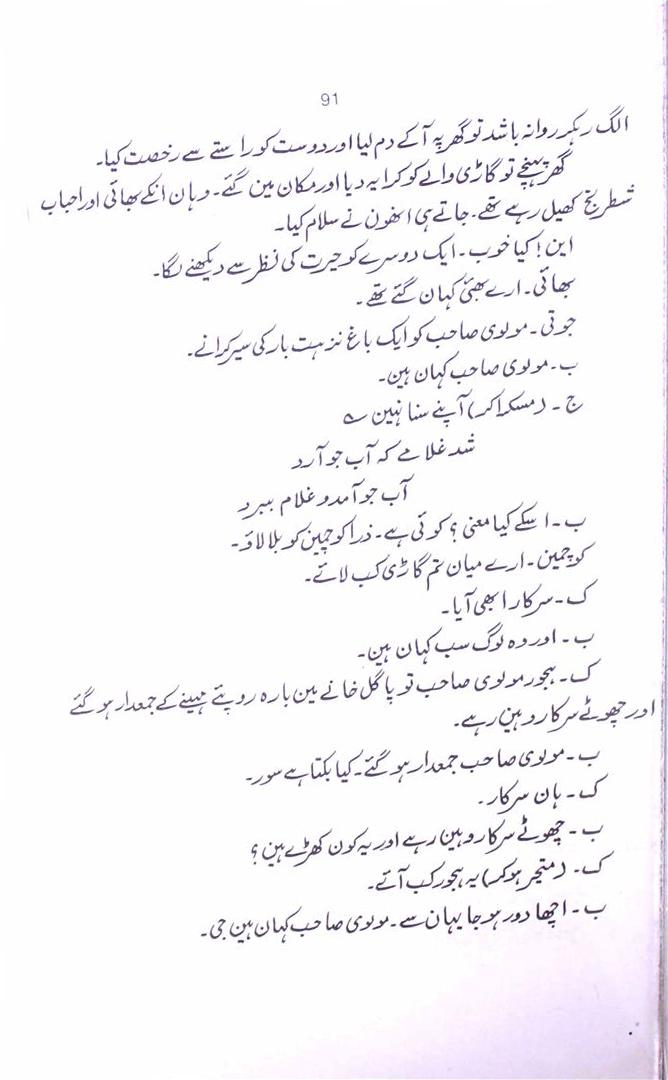 91
الگ رہکر روانہ باشد تو گھر پہ آکے دم لیا اور دوست کو راستے سے رخصت کیا۔
گھر پہنچے تو گاڑی والے کو کرایہ دیا اور مکان مین گئے۔ وہان انکے بھائی اور احباب
شطرنج کھیل رہے تھے۔ جاتے ہی انھون نے سلام کیا۔
این! کیا خوب۔ ایک دوسرے کو حیرت کی نظر سے دیکھنے لگا۔
بھائی۔ ارے بھئی کہان گئے تھے۔
جوتی۔ مولوی صاحب کو ایک باغ نزہت بار کی سیر کرانے۔
ب۔ مولوی صاحب کہان ہین۔
ج۔ (مسکراکر) آپنے سنا نہین ؎
شد غلامے کہ آب جو آرد
آب جو آمد و غلام ببرد
ب۔ اسکے کیا معنی؟ کوئی ہے۔ ذرا کوچمین کو بلا لاؤ۔
کوچمین۔ ارے میان تم گاڑی کب لائے۔
ک۔ سرکار ابھی آیا۔
ب۔ اور وہ لوگ سب کہان ہین۔
ک۔ ہجور مولوی صاحب تو پاگل خانے مین بارہ روپئے مہینے کے جمعدار ہو گئے
اور چھوٹے سرکار وہین رہے۔
ب۔ مولوی صاحب جمعدار ہو گئے۔ کیا بکتا ہے سور۔
ک۔ ہان سرکار۔
ب۔ چھوٹے سرکار وہین رہے اور یہ کون کھڑے ہین؟
ک۔ (متحیر ہوکر) یہ ہجور کب آئے۔
ب۔ اچھا دور ہو جا یہان سے۔ مولوی صاحب کہان ہین جی۔